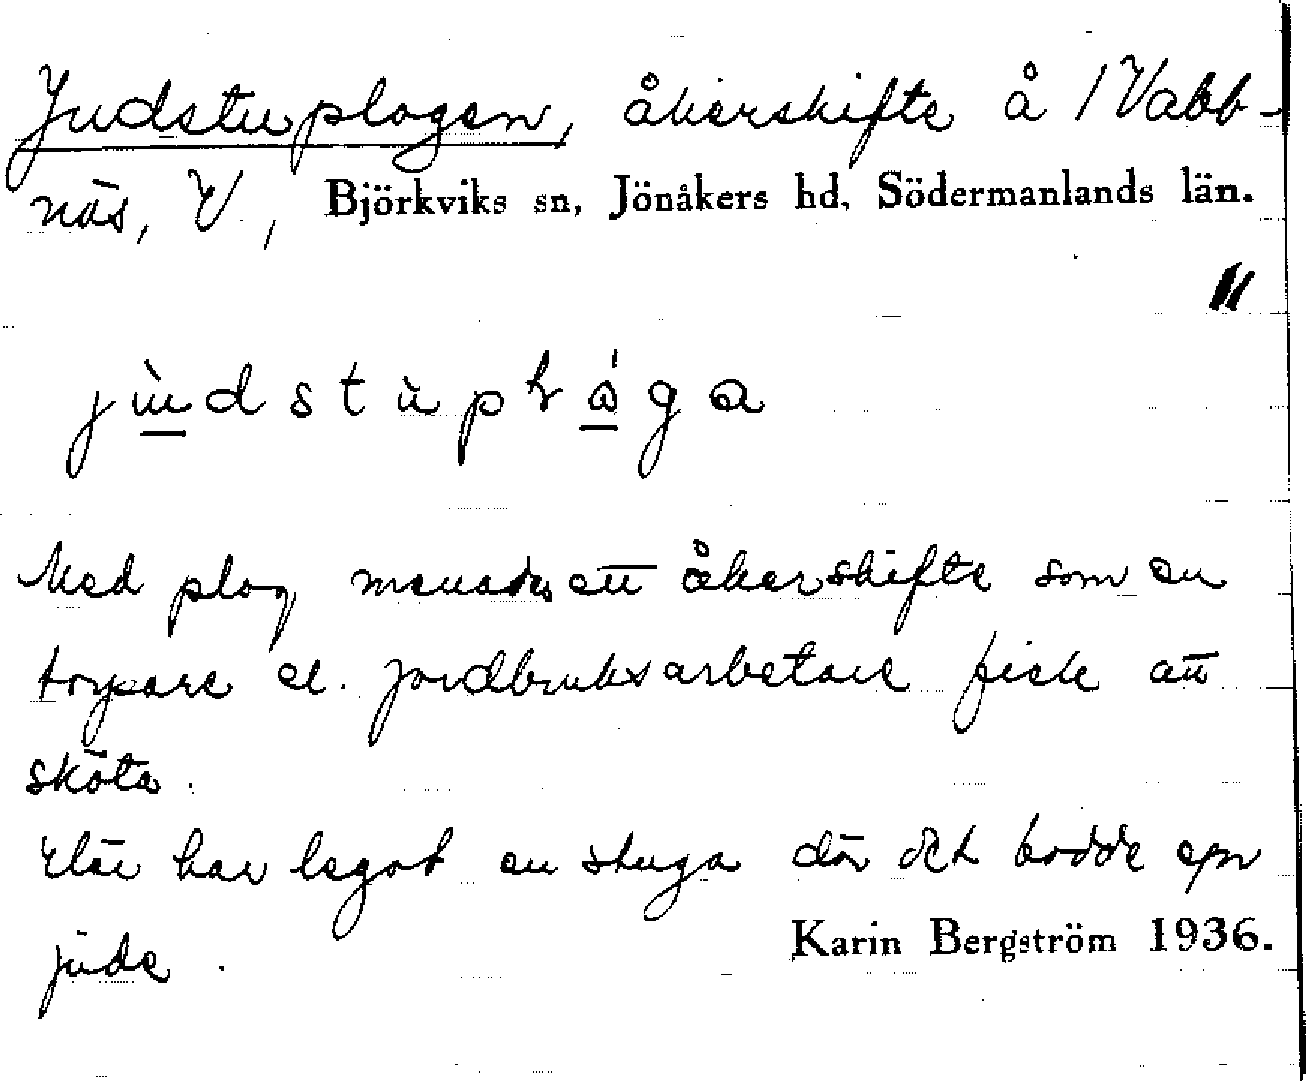 Judstuplogen, åkerskifte å / Vabb-
näs, V., Björkviks sn, Jönåkers hd, Södermanlands län.
"
Med plog menades ett åkerskifte som en
torpare el. jordbruksarbetare fick att
sköta.
Där har legat en stuga där det bodde en
jude.
Karin Bergström 1936.